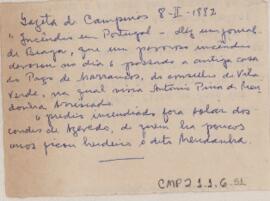 Gazeta de Campinas 8-II-1882
"Incêndio em Portugal - Diz um jornal
de Braga, que um pavoroso incendio
devorou no dia 6 passado a antiga casa
do Paço de Marrancos, do conselho de Vila
Verde, na qual vivia Antonio Pinna de
o predio incendiado fora solar dos
condes de Azevedo, de quem ha poucos
anos ficou herdeiro o dito Mendanha.
CMP 2.1.1.6.51